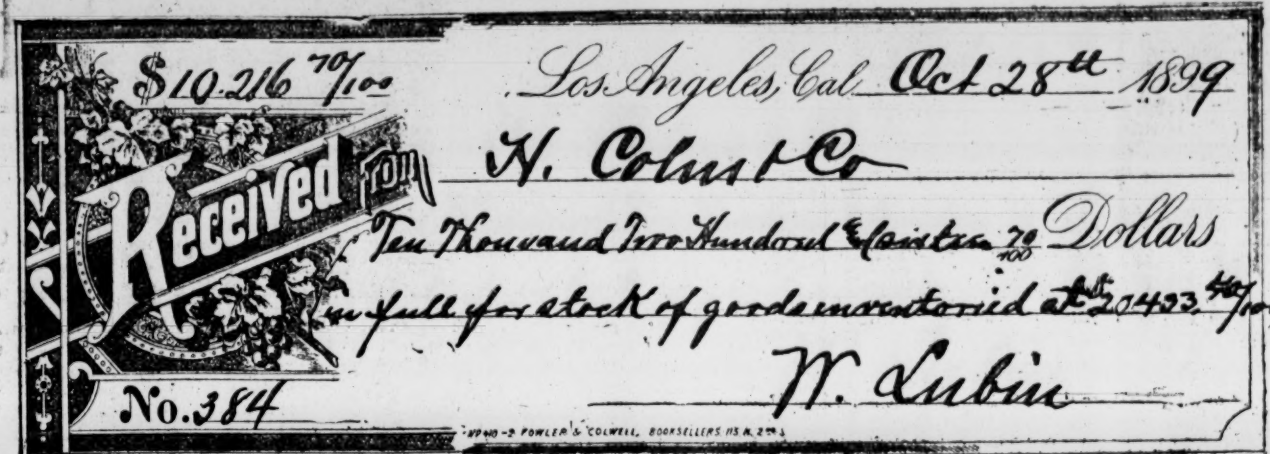 $10.216 70/100 Los Angeles, Cal. Oct 28th 1899
Received from H. Cohn & Co
Ten Thousand Two Hundred & Sixteen 70/100 Dollars
in full for stock of goods inventoried at $20433.40/100
No. 384 W. Lubin
FOWLER & COLWELL, BOOKSELLERS 115 N. 2nd S